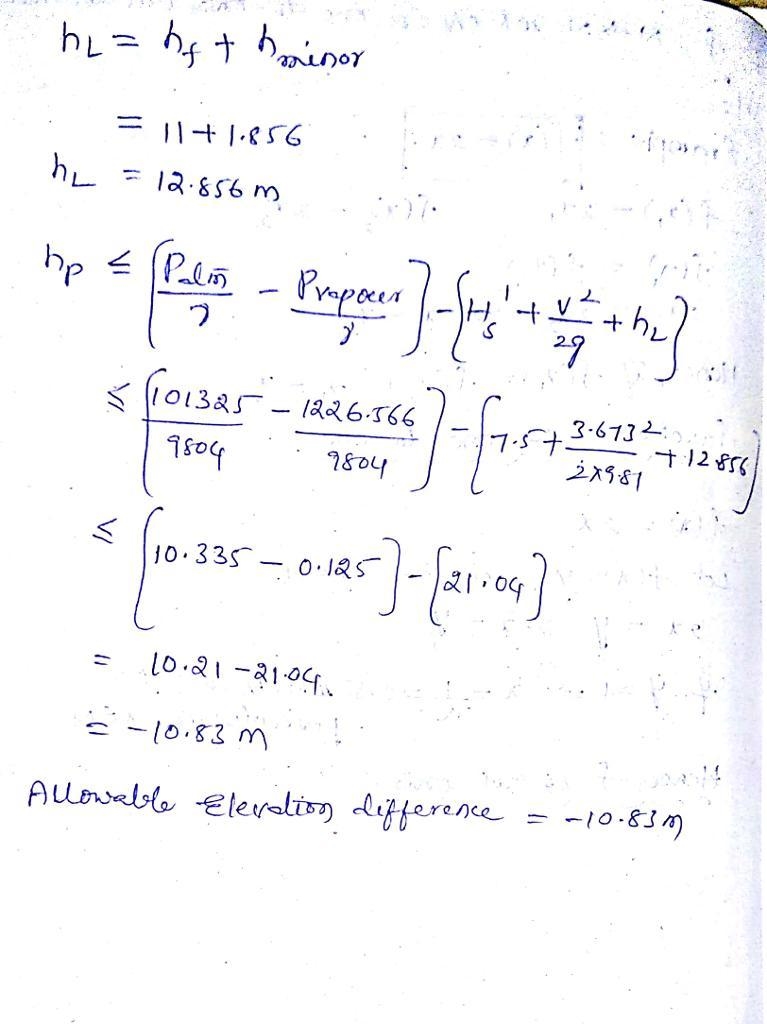 hL = hf + hminor
= 11 + 1.856
hL = 12.856 m
hp ≤ [Patm/γ - Pvapour/γ] - {Hs' + V²/2g + hL}
≤ [101325/9804 - 1226.566/9804] - [7.5 + 3.673²/2×9.81 + 12.856]
≤ [10.335 - 0.125] - [21.04]
= 10.21 - 21.04
= -10.83 m
Allowable Elevation difference = -10.83 m